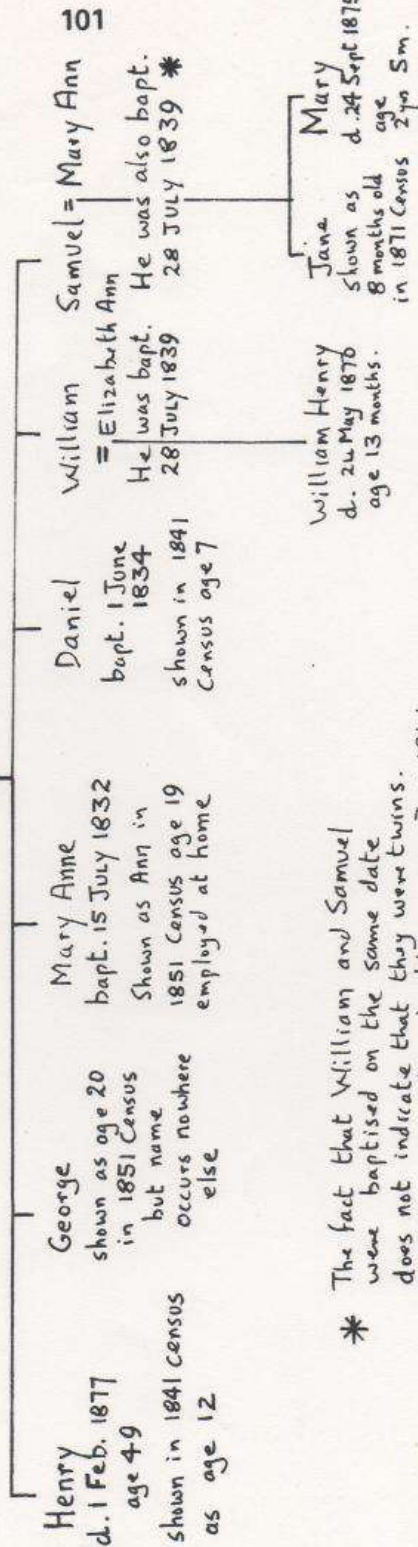 101
Henry
d. 1 Feb. 1877
age 49
shown in 1841 census
as age 12
George
shown as age 20
in 1851 Census
but name
occurs nowhere
else
Mary Anne
bapt. 15 July 1832
Shown as Ann in
1851 Census age 19
employed at home
Daniel
bapt. 1 June
1834
shown in 1841
Census age 7
William
= Elizabeth Ann
He was bapt.
28 July 1839
Samuel = Mary Ann
He was also bapt.
28 July 1839 *
William Henry
d. 24 May 1870
age 13 months.
Jane
shown as
8 months old
in 1871 Census
Mary
d. 24 Sept 1875
age
2yrs 5m.
* The fact that William and Samuel
were baptised on the same date
does not indicate that they were twins.